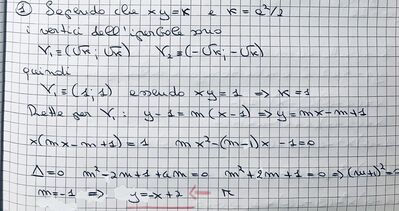 ① Sapendo che xy=k e k=a²/2
i vertici dell'iperbole sono
V₁≡(√k; √k) V₂≡(-√k; -√k)
quindi
V₁≡(1; 1) essendo xy=1 ⇒ k=1
Rette per V₁: y-1=m(x-1) ⇒ y=mx-m+1
x(mx-m+1)=1 mx²-(m-1)x-1=0
Δ=0 m²-2m+1+4m=0 m²+2m+1=0 ⇒ (m+1)²=0
m=-1 ⇒ y=-x+2 ←